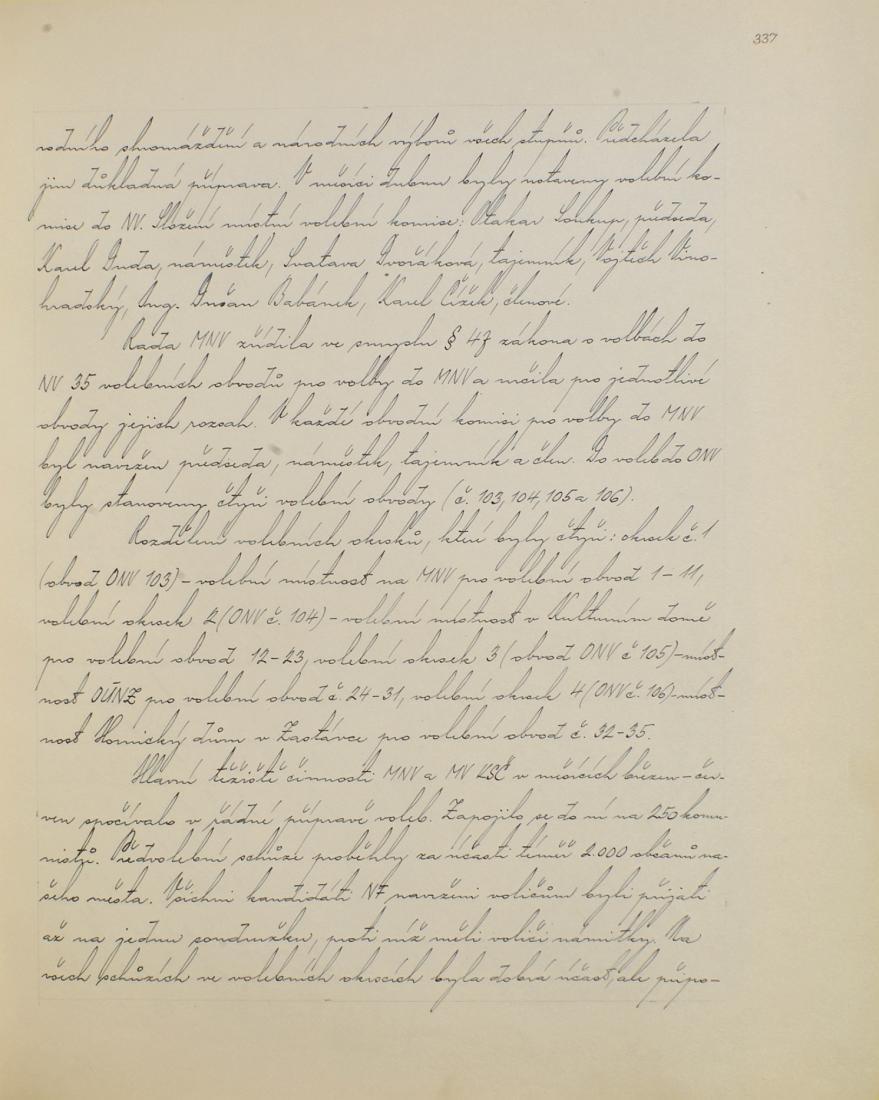 337
rodního shromáždění a národních výborů všech stupňů. Předcházela
jim důkladná příprava. V měsíci dubnu byly ustaveny volební ko-
mise do NV. Složení místní volební komise: Otakar Soukup, předseda,
Karel Duda, náměstek, Svatava Dvořáková, tajemník, Vojtěch Vino-
hradský, Ing. Dušan Babánek, Karel Čížek, členové.
Rada MNV zřídila ve smyslu § 47 zákona o volbách do
NV 35 volebních obvodů pro volby do MNV a určila pro jednotlivé
obvody jejich rozsah. V každé obvodní komisi pro volby do MNV
byl navržen předseda, náměstek, tajemník a člen. Do voleb do ONV
byly stanoveny čtyři volební obvody (č. 103, 104, 105 a 106).
Rozdělení volebních okrsků, které byly čtyři: okrsek č. 1
(obvod ONV 103) - volební místnost na MNV pro volební obvod 1 - 11,
volební okrsek 2 (ONV č. 104) - volební místnost v Kulturním domě
pro volební obvod 12-23, volební okrsek 3 (obvod ONV č 105) - míst-
nost OÚNZ pro volební obvod č. 24-31, volební okrsek 4 (ONV č. 106) - míst-
nost Hornický dům v Zastávce pro volební obvod č. 32-35.
Hlavní těžiště činnosti MNV a MV KSČ v měsících březen - čer-
ven spočívalo v řádné přípravě voleb. Zapojilo se do ní na 250 komu-
nistů. Předvolební schůze proběhly za účasti téměř 2.000 občanů na-
šeho města. Všichni kandidáti NF navržení voličům byli přijati
až na jednu soudružku, proti níž měli voliči námitky. Na
všech schůzích ve volebních okrscích byla dobrá účast, ale přípo-